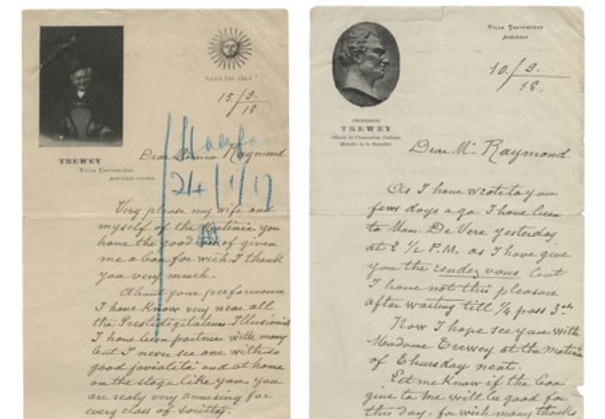 TREWEY
VILLA TREWEYZIERE
ASNIERES (SEINE)
Sans lui rien!
15/9.
18.
Dear Maurice Raymond
24/1/17
Very please my wife and
myself of the Matinée you
have the good of given
me a box for wich I thank
you very much.
About your performance
I have Know very near all
the Prestidigitateurs Illusionist
I have been partner with many
but I never see one with so
good jovialité and at home
on the stage like you you
are realy very amusing for
every class of society.
VILLA
ASNIERES
10./9.
18.
PROFESSOR
TREWEY
Officier de l'Instruction Publique
Dear Mr Raymond.
As I have wrote to you
few days ago I have been
to Mm. De Vere yesterday
at 2 1/2 P.M. as I have give
you the rendez vous but
I have not this pleasure
after waiting till 1/4 pass 3
Now I hope see you with
Madame Trewey at the Matinée
of Thursday next.
Let me Know if the box
give to me will be good for
this day. for wich many thanks